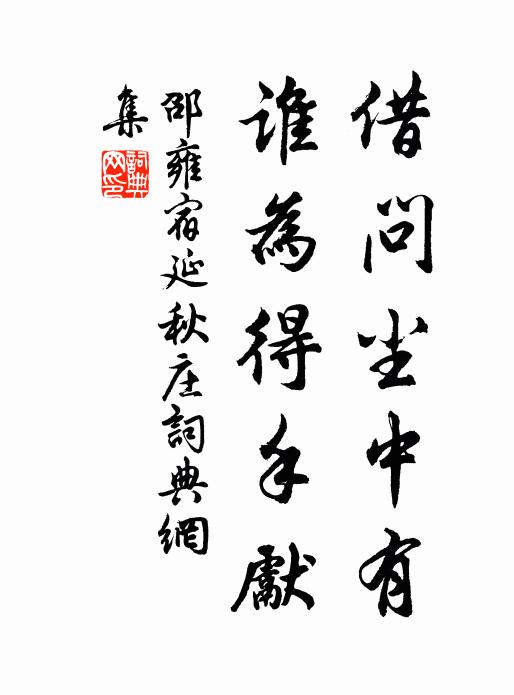 借問尘中有
誰為得手獻
邵雍宿延秋庄詞典網
集
詞典网印